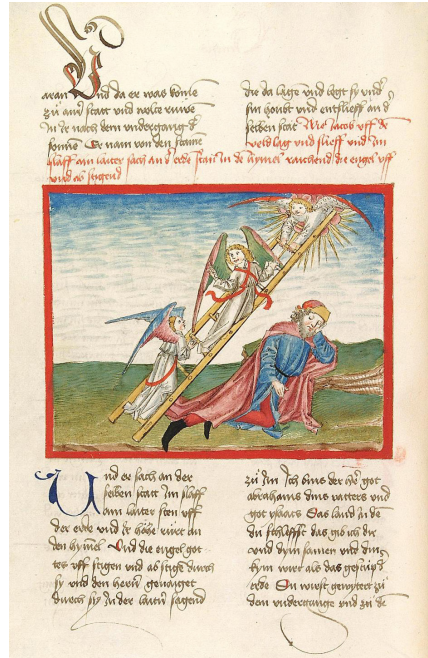 aran Und da er was komē
zů ainʳ statt vnd wolte ruwē
In ir nach dem vndergang d
sonnē Er nam von den stainē
die da lagen vnd legt sy vndʳ
sin houbt vnd entslieff an d
selben stat Wie Jacob vff dē
veld lag vnd slieff vnd Im
slaff ain laiter sach an dʳ erde stan In dē hymel raichend die engel vff
vnd ab stigend
Und er sach an der
selben statt Im slaff
ain laiter sten vff
der erde vnd ir höhe růrt an
den hymel Vnd die engel got
tes vff stigen vnd ab stigē durch
sy vnd den herrn genaiget
durch sy In der laitʳ sagend
zů Im Ich bins der hr̄ got
abrahams dins vatters vnd
got ysaacs Das land In dē
du schlaffst das gib ich dir
vnd dym samen vnd din
sym wirt als das gestüp d
erde Du wirst gewytert zů
dem vndergange vnd zů dē